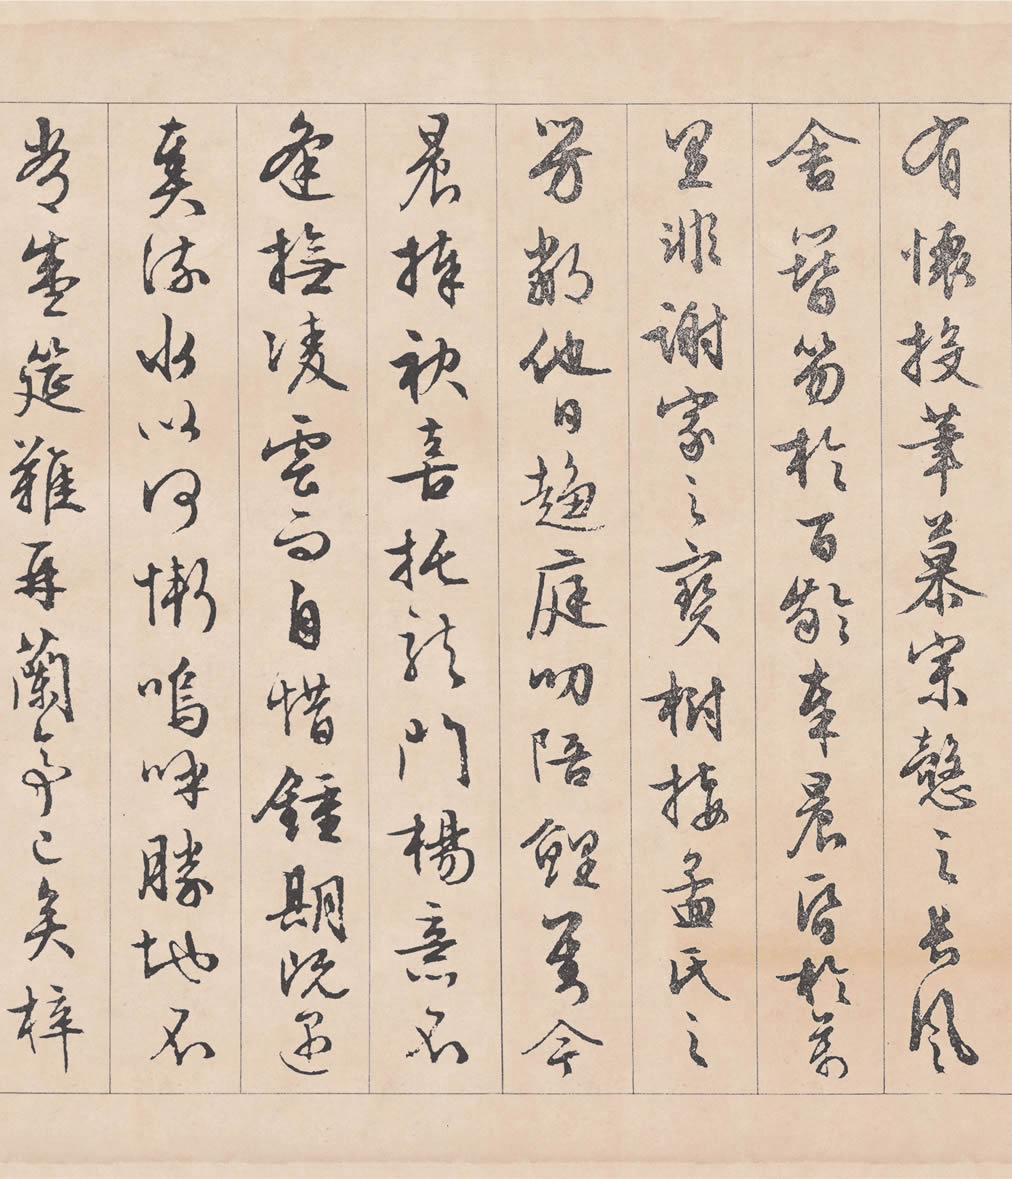 有懷投筆慕宗愨之長風
舍簪笏於百齡奉晨昏於萬
里非謝家之寶樹接孟氏之
芳鄰他日趨庭叨陪鯉對今
晨捧袂喜托龍門楊意不
逢撫凌雲而自惜鍾期既遇
奏流水以何慚嗚呼勝地不
常盛筵難再蘭亭已矣梓